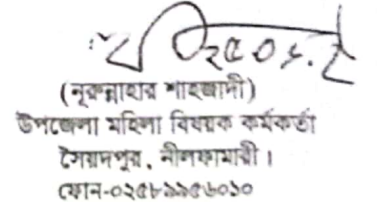 (নূরুন্নাহার শাহজাদী)
উপজেলা মহিলা বিষয়ক কর্মকর্তা
সৈয়দপুর, নীলফামারী।
ফোন-০২৫৮৯৯৫৬০১০